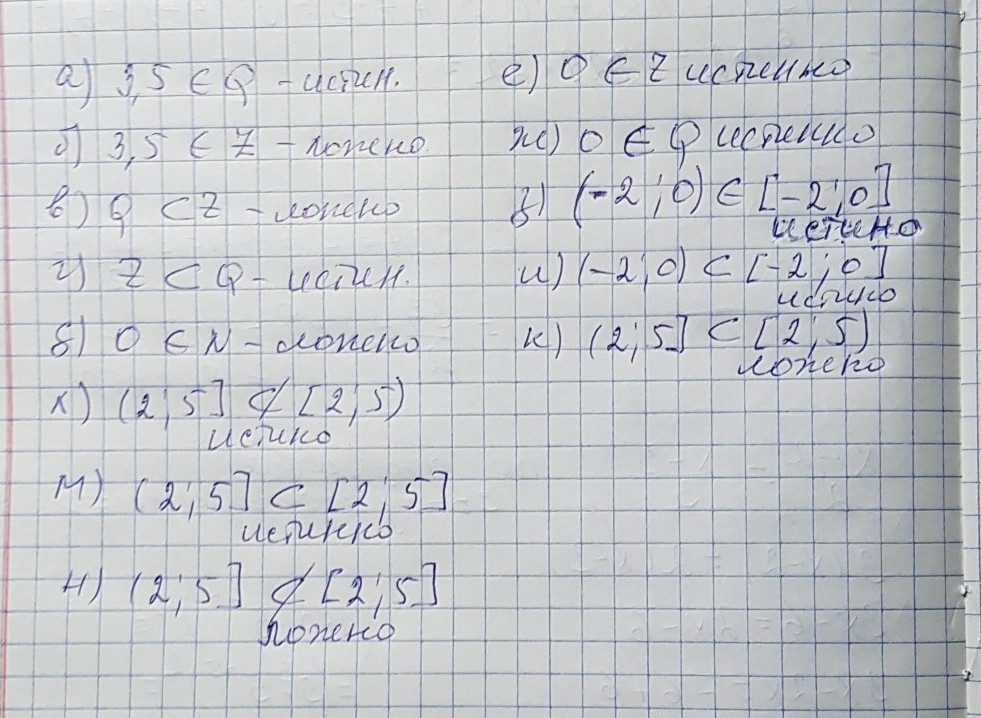 а) 3,5 ∈ Q - истин.
б) 3,5 ∈ Z - ложено
в) Q ⊂ Z - ложено
г) Z ⊂ Q - истин.
д) 0 ∈ N - ложено
л) (2; 5] ⊄ [2; 5)
истино
м) (2; 5] ⊂ [2; 5]
истинно
н) (2; 5] ⊄ [2; 5]
ложено
е) 0 ∈ Z истинно
ж) 0 ∈ Q истинно
з) (-2; 0) ∈ [-2; 0]
истино
и) (-2; 0) ⊂ [-2; 0]
истино
к) (2; 5] ⊂ [2; 5)
ложено